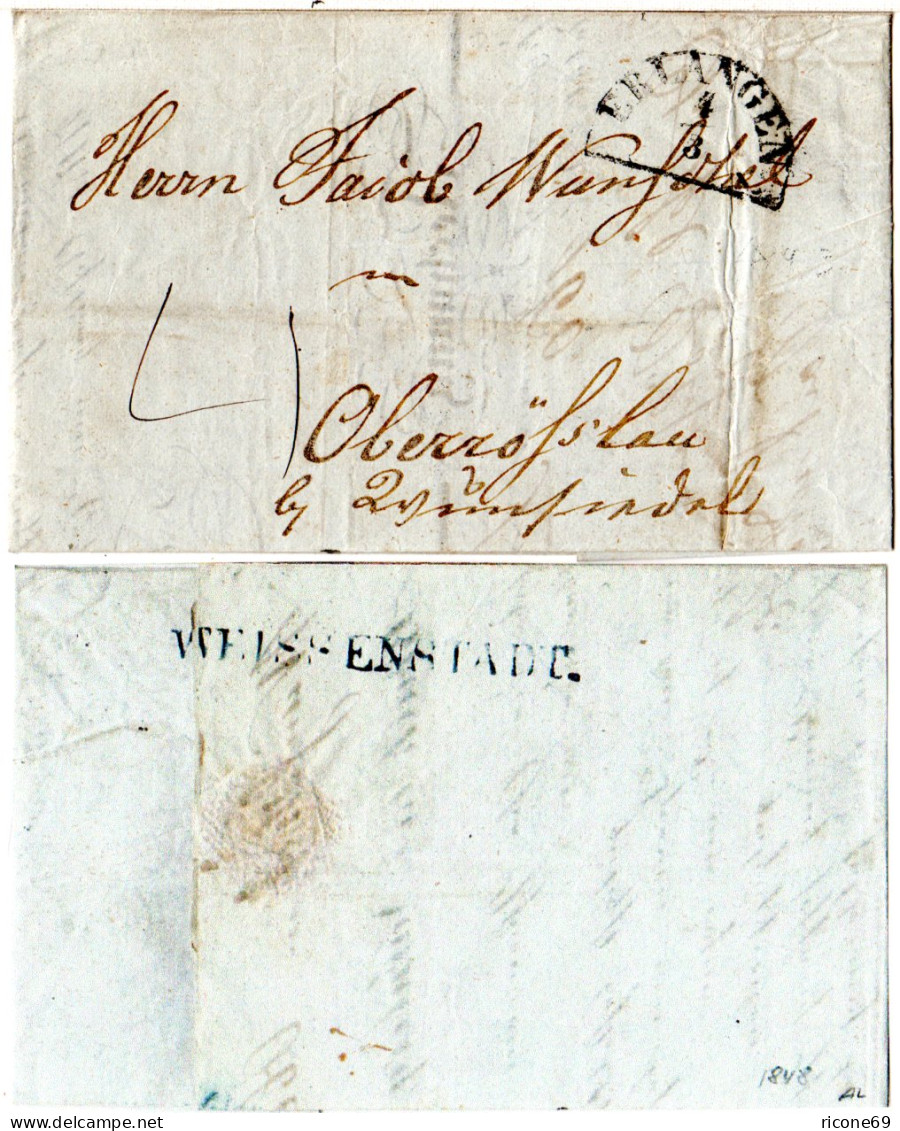 ERLANGEN
4
3
Herrn Jacob Wunschel
in
4
Oberrösslau
by Wunsiedel
WEISSENSTADT.
1848
AL
ricone69